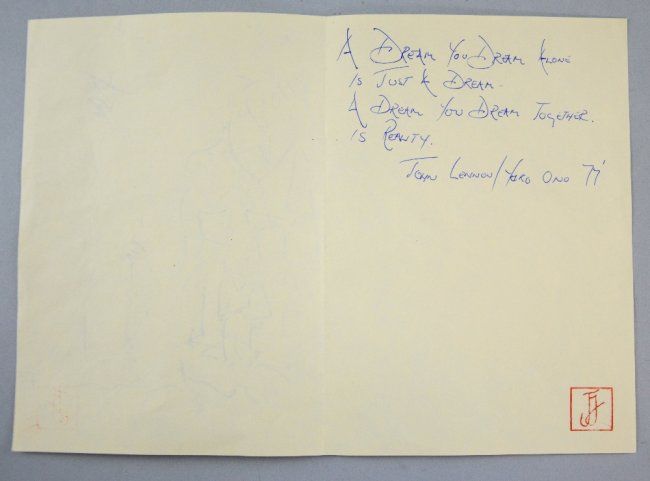 A Dream You Dream Alone
is Just A Dream.
A Dream You Dream Together.
is Reality.
John Lennon/Yoko Ono 77'